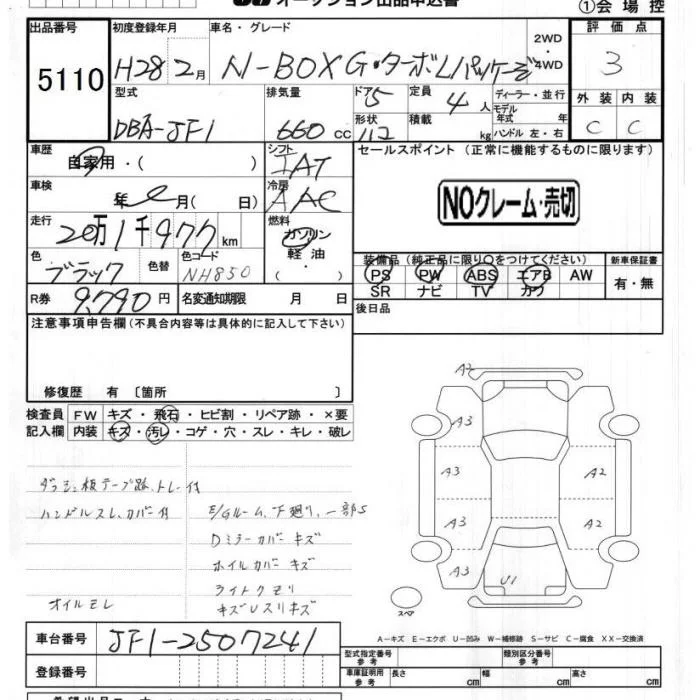 オークション出品申込書
①会場控
出品番号 初度登録年月 車名・グレード 2WD ・4WD 評価点
5110 H28 2月 N-BOX G・ターボLパッケージ 3
型式 排気量 ドア 定員 ディーラー・並行 外装 内装
DBA-JF1 660cc 5 4人 モデル年式 年 C C
形状 積載 kg ハンドル 左・右
車歴 自家用・( ) シフト IAT セールスポイント (正常に機能するものに限ります)
車検 年 月( 日) 冷房 AAC NOクレーム・売切
走行 20万1千977km 燃料 ガソリン
軽油・( )
色 ブラック 色替 色コード NH850
装備品 (純正品に限り○をつけてください) 新車保証書
PS PW ABS エアB AW 有・無
SR ナビ TV カワ
R券 9,790円 名変通知期限 月 日 後日品
注意事項申告欄(不具合内容等は具体的に記入して下さい)
修復歴 有 〔箇所 〕
検査員 FW キズ・飛石・ヒビ割・リペア跡・×要
記入欄 内装 キズ・汚レ・コゲ・穴・スレ・キレ・破レ
ダッシュ板テープ跡、トレー付
ハンドルスレ、カバー付 E/Gルーム、下廻り、一部S
Dミラーカバー キズ
ホイルカバー キズ
ライトクモリ
オイルモレ キズUスリキズ
A2
A3
A3 A2
A3 A2
A3 U1
スペア
A-キズ E-エクボ U-凹み W-補修跡 S-サビ C-腐食 XX-交換済
車台番号 JF1-2507241
型式指定番号 参考 類別区分番号 参考
登録番号 車庫証明用 参考 長さ cm 幅 cm 高さ cm